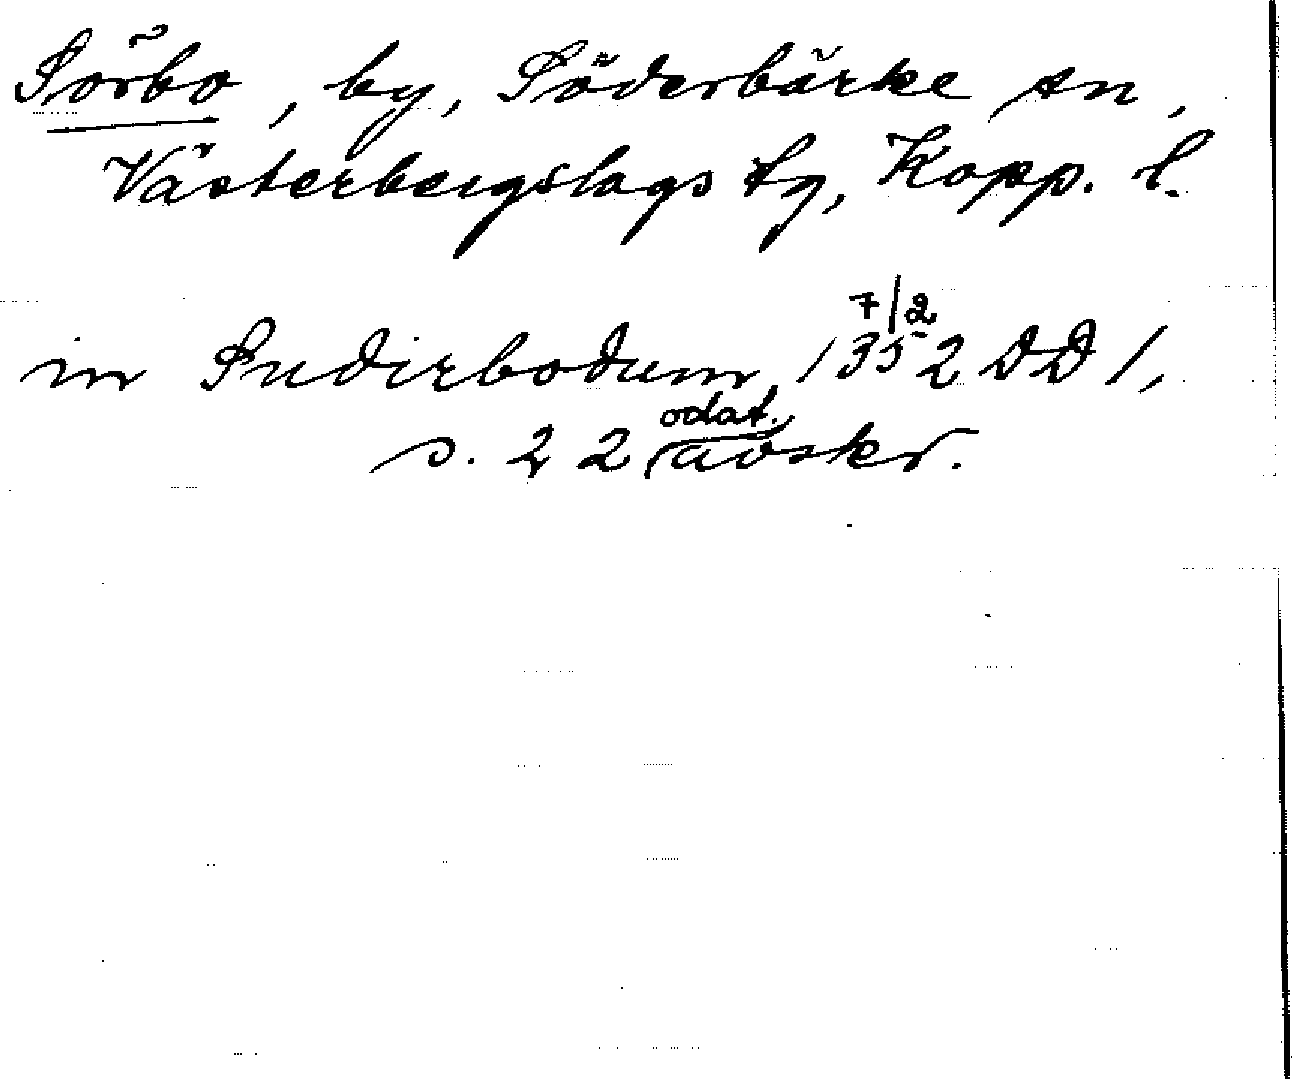 Sörbo, by, Söderbärke sn,
Västerbergslags tg, Kopp. l.
in Sudirbodum 7/2 1352 DD 1,
s. 22 (odat. avskr.